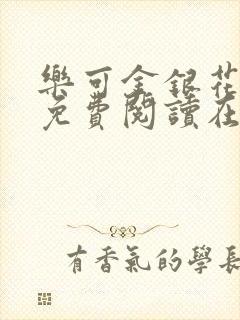 樂可金銀花
免費閱讀在
有香氣的學長